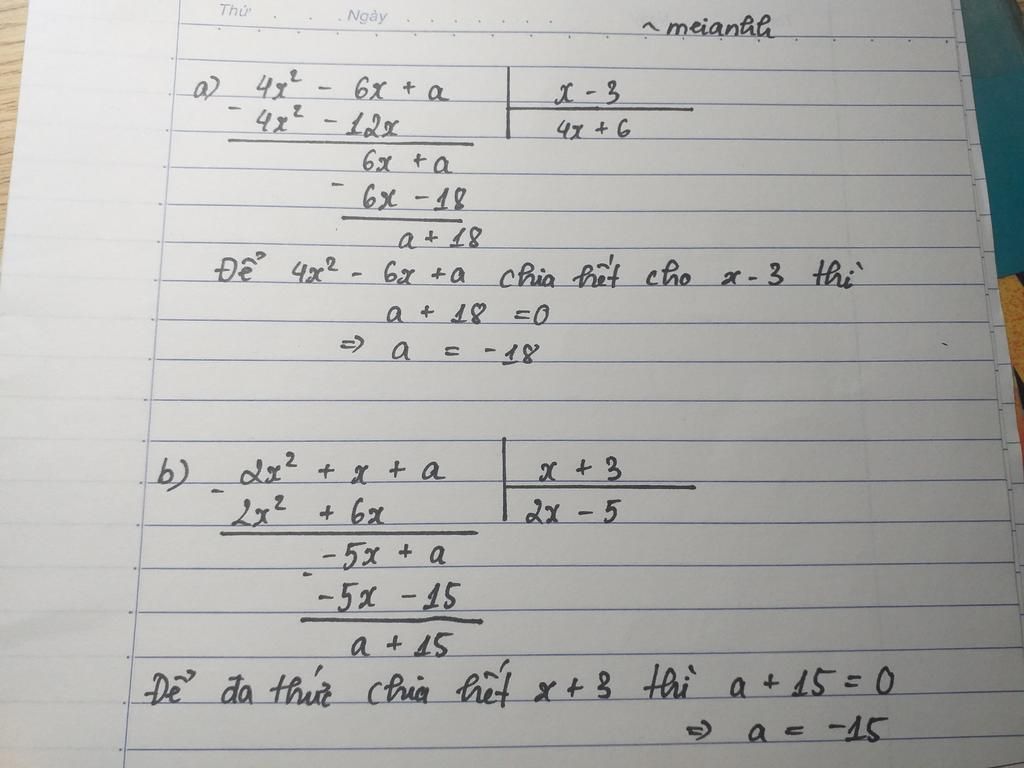 Thứ . . . Ngày . . . . . . .
~ meianhh
a) 4x² - 6x + a | x - 3
- 4x² - 12x | 4x + 6
6x + a
- 6x - 18
a + 18
Để 4x² - 6x + a chia hết cho x - 3 thì
a + 18 = 0
=> a = -18
b) 2x² + x + a | x + 3
- 2x² + 6x | 2x - 5
-5x + a
- -5x - 15
a + 15
Để đa thức chia hết x + 3 thì a + 15 = 0
=> a = -15